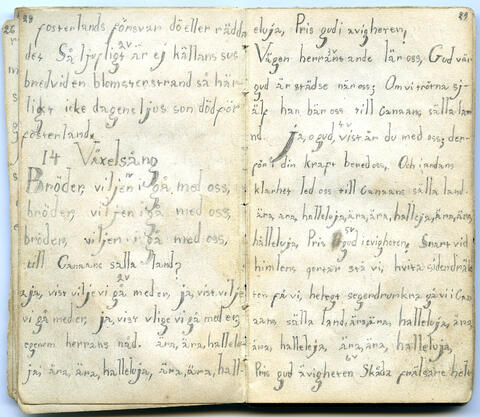 28
fosterlands försvar dö eller rädda
det Så ljufligt är ej källans sus
2v
bredvid en blomsterstrand så här-
ligt icke dagens ljus som död för
fosterland.
14 Växelsång
Bröder, viljen i gå med oss,
1v
bröder, viljen i gå med oss,
bröder, viljen i gå med oss,
till Canaans sälla land?
2v
Ja, ja, vist vilje vi gå med er, ja, vist vilje
vi gå med er, ja, vist vlige vi gå med er,
genom herrans nåd. ära, ära, hallelu-
ja, ära, ära, halleluja, ära, ära, hall-
29
eluja, Pris gud i evigheten,
Vägen herrans ande lär oss, Gud vår
gud är städse när oss; Om vi tröttna sj-
älf han bär oss till Canaans sälla lan-
d. Ja, o gud, vist är du med oss; der-
4v
för i din kraft bered oss, Och i andans
klarhet led oss till Canaans sälla land.
ära, ära, halleluja, ära, ära, halleja, ära, ära,
halleluja, Pris gud i evigheten, Snart vid
5v
himlens portar stå vi, hvita sidendräk-
ten få vi, helegt segerdrunkna gå vi i Can-
aans sälla land, ära, ära, halleluja, ära,
ära, halleleja, ära, ära, halleluja,
6v
Pris gud i evigheten Skåda frälsare helt